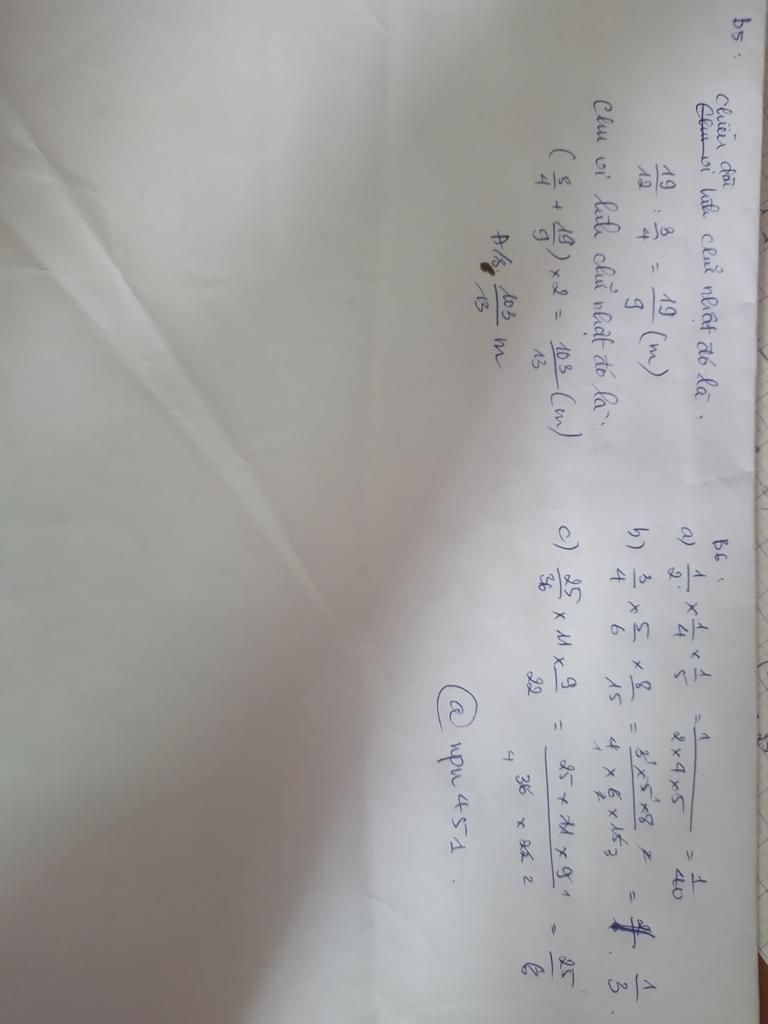 B5:
Chiều dài hình chữ nhật đó là:
19/12 : 3/4 = 19/9 (m)
Chu vi hình chữ nhật đó là:
(3/4 + 19/9) × 2 = 103/13 (m)
Đ/S 103/13 m
B6:
a) 1/2 × 1/4 × 1/5 = 1/(2×4×5) = 1/40
b) 3/4 × 5/6 × 8/15 = (3×5×8)/(4×6×15) = 1/3.
c) 25/36 × 11 × 9/22 = (25×11×9)/(36×22) = 25/6
@ npn451.